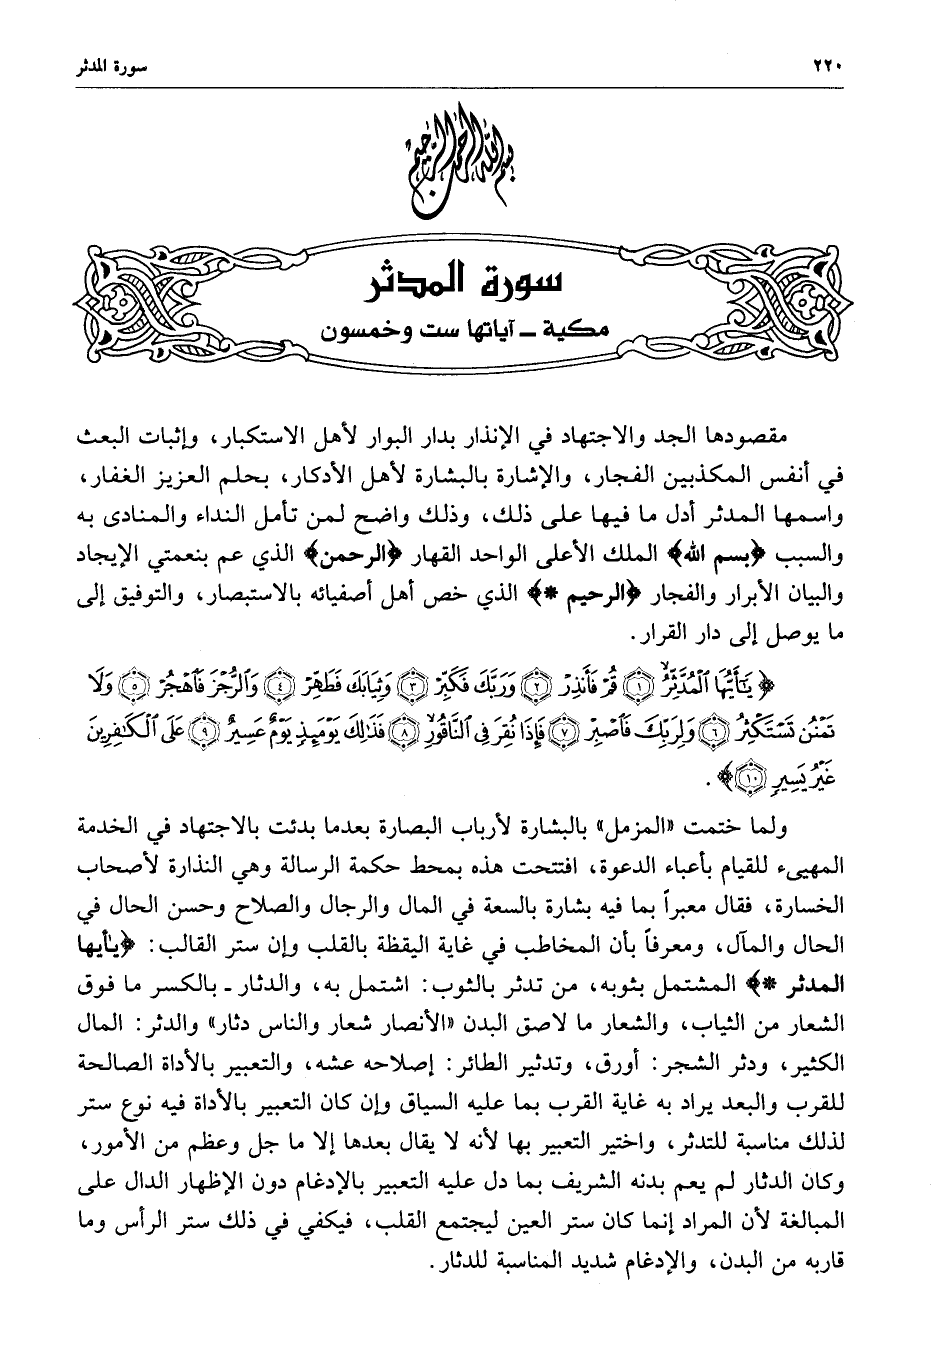 ٢٢٠ سورة المدثر
بسم الله الرحمن الرحيم
سورة المدثر
مكية ـ آياتها ست وخمسون
مقصودها الجد والاجتهاد في الإنذار بدار البوار لأهل الاستكبار، وإثبات البعث
في أنفس المكذبين الفجار، والإشارة بالبشارة لأهل الأدكار، بحلم العزيز الغفار،
واسمها المدثر أدل ما فيها على ذلك، وذلك واضح لمن تأمل النداء والمنادى به
والسبب ﴿بسم الله﴾ الملك الأعلى الواحد القهار ﴿الرحمن﴾ الذي عم بنعمتي الإيجاد
والبيان الأبرار والفجار ﴿الرحيم *﴾ الذي خص أهل أصفيائه بالاستبصار، والتوفيق إلى
ما يوصل إلى دار القرار.
﴿يَٰٓأَيُّهَا ٱلْمُدَّثِّرُ ۝١ قُمْ فَأَنذِرْ ۝٢ وَرَبَّكَ فَكَبِّرْ ۝٣ وَثِيَابَكَ فَطَهِّرْ ۝٤ وَٱلرُّجْزَ فَٱهْجُرْ ۝٥ وَلَا
تَمْنُن تَسْتَكْثِرُ ۝٦ وَلِرَبِّكَ فَٱصْبِرْ ۝٧ فَإِذَا نُقِرَ فِى ٱلنَّاقُورِ ۝٨ فَذَٰلِكَ يَوْمَئِذٍ يَوْمٌ عَسِيرٌ ۝٩ عَلَى ٱلْكَٰفِرِينَ
غَيْرُ يَسِيرٍ ۝١٠﴾.
ولما ختمت «المزمل» بالبشارة لأرباب البصارة بعدما بدئت بالاجتهاد في الخدمة
المهيىء للقيام بأعباء الدعوة، افتتحت هذه بمحط حكمة الرسالة وهي النذارة لأصحاب
الخسارة، فقال معبراً بما فيه بشارة بالسعة في المال والرجال والصلاح وحسن الحال في
الحال والمآل، ومعرفاً بأن المخاطب في غاية اليقظة بالقلب وإن ستر القالب: ﴿يأيها
المدثر *﴾ المشتمل بثوبه، من تدثر بالثوب: اشتمل به، والدثار ـ بالكسر ما فوق
الشعار من الثياب، والشعار ما لاصق البدن «الأنصار شعار والناس دثار» والدثر: المال
الكثير، ودثر الشجر: أورق، وتدثير الطائر: إصلاحه عشه، والتعبير بالأداة الصالحة
للقرب والبعد يراد به غاية القرب بما عليه السياق وإن كان التعبير بالأداة فيه نوع ستر
لذلك مناسبة للتدثر، واختير التعبير بها لأنه لا يقال بعدها إلا ما جل وعظم من الأمور،
وكان الدثار لم يعم بدنه الشريف بما دل عليه التعبير بالإدغام دون الإظهار الدال على
المبالغة لأن المراد إنما كان ستر العين ليجتمع القلب، فيكفي في ذلك ستر الرأس وما
قاربه من البدن، والإدغام شديد المناسبة للدثار.